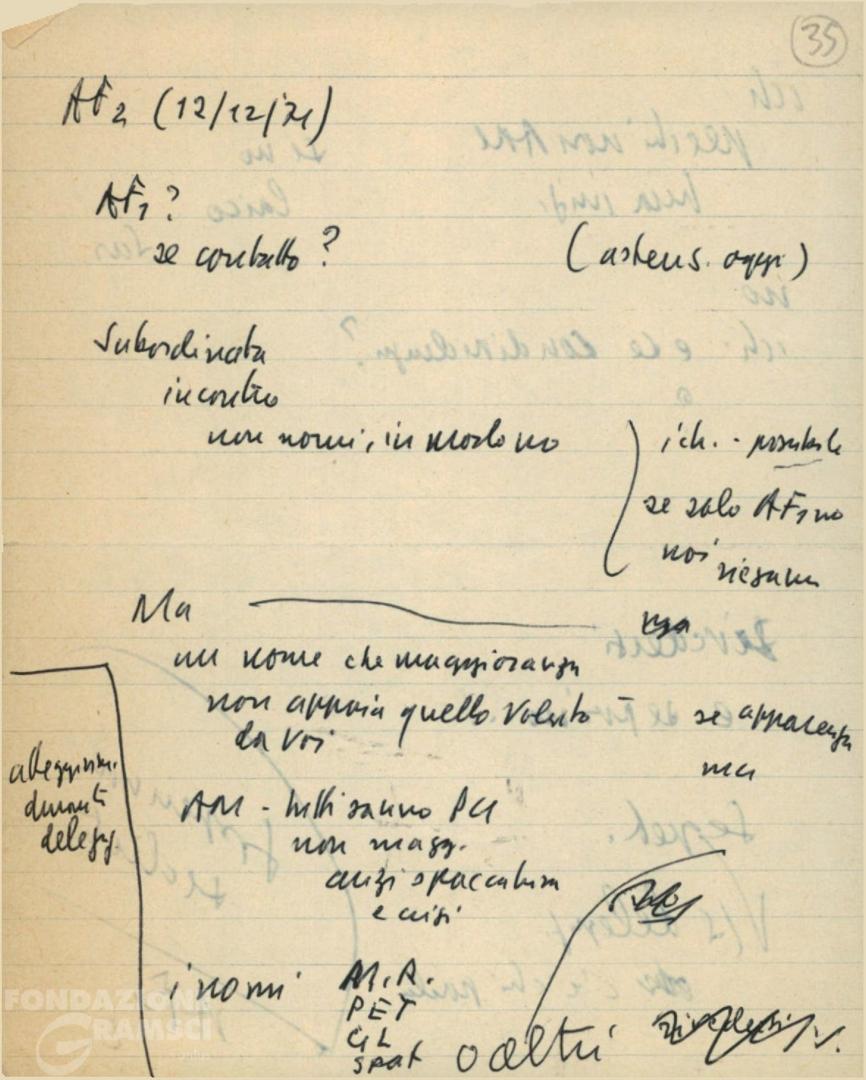 35
AF2 (12/12/71)
AF1?
se contatto?
(astens. oggi)
Subordinata
incontro
non nomi, in modo no
ich. - possibile
se solo AF1 no
noi riesam
Ma
un nome che maggioranza
non appaia quello voluto
da voi
se appartenga
ma
atteggiam.
durante
deleg.
AM - tutti sanno PCI
non magg.
anzi spaccatura
e crisi
i nomi
M.R.
PET
GL
SPAT
o altri
FONDAZIONE
GRAMSCI